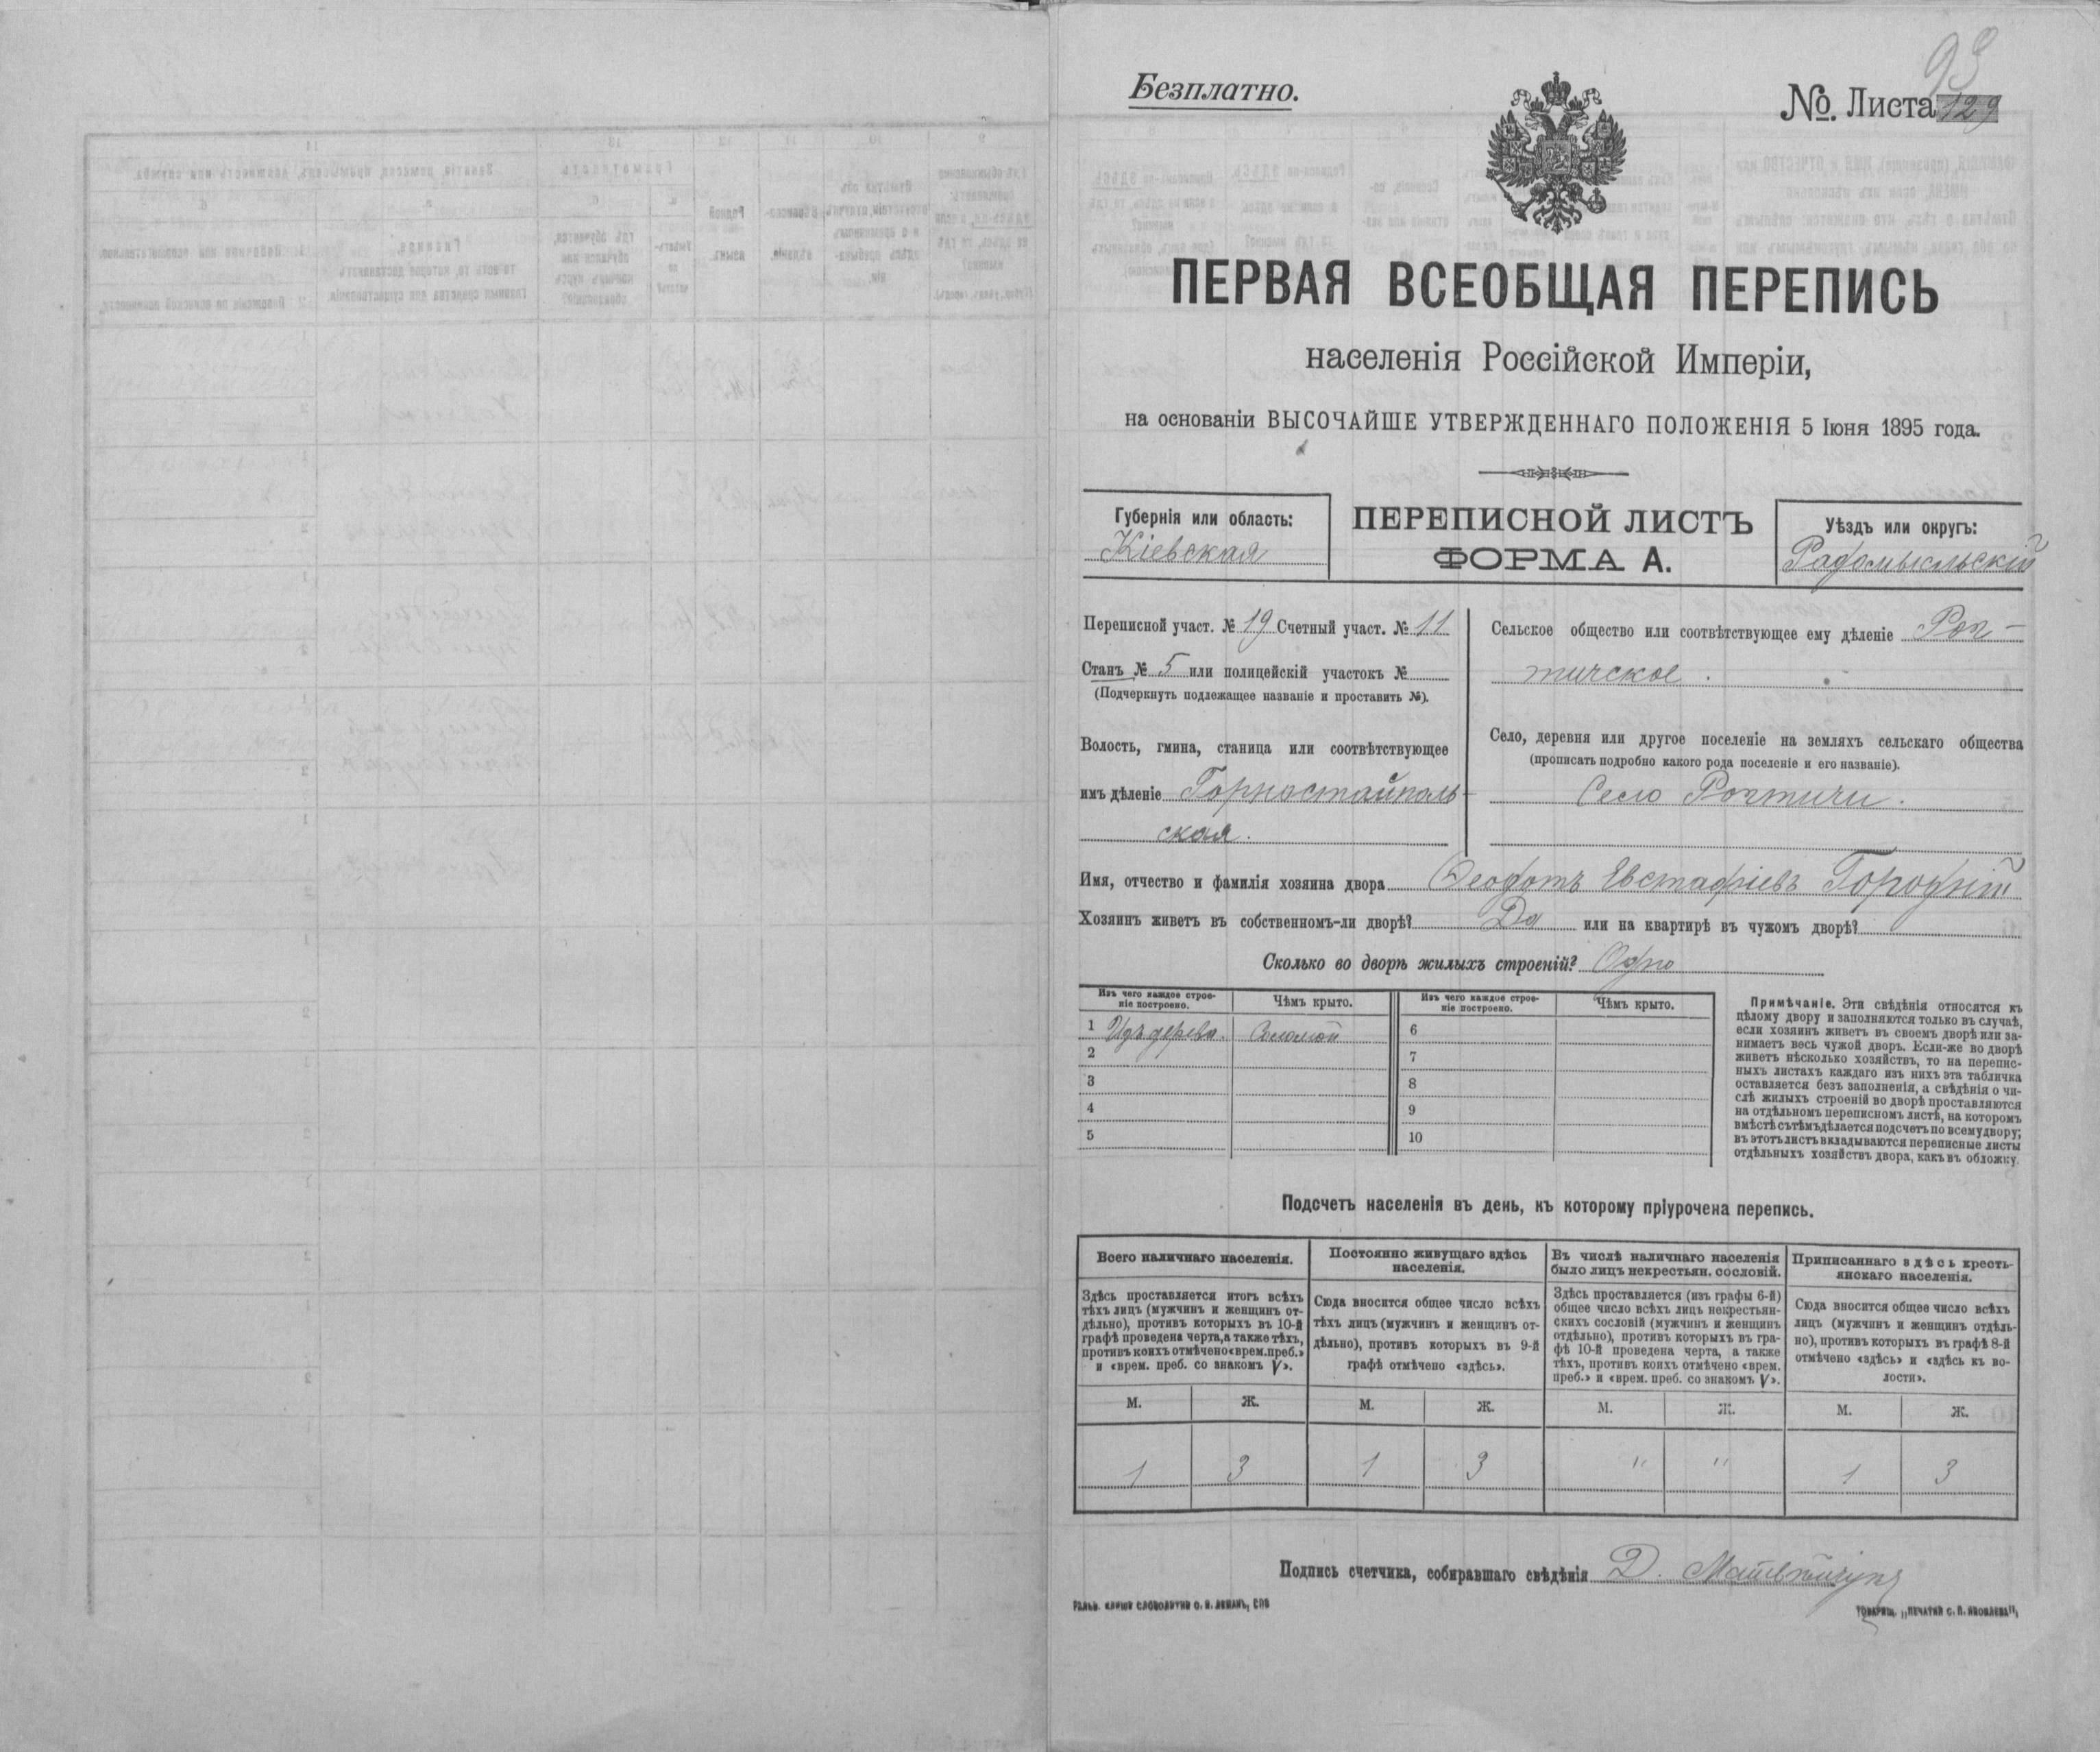 93
Безплатно.
№. Листа 129
ПЕРВАЯ ВСЕОБЩАЯ ПЕРЕПИСЬ
населенія Россійской Имперіи,
на основаніи ВЫСОЧАЙШЕ УТВЕРЖДЕННАГО ПОЛОЖЕНІЯ 5 Іюня 1895 года.
Губернія или область:
Кіевская
ПЕРЕПИСНОЙ ЛИСТЪ
ФОРМА А.
Уѣздъ или округъ:
Радомысльскій
Переписной участ. № 19 Счетный участ. № 11
Станъ № 5 или полицейскій участокъ №
(Подчеркнуть подлежащее названіе и проставить №).
Волость, гмина, станица или соотвѣтствующее
имъ дѣленіе Горностайполь-
ская.
Сельское общество или соотвѣтствующее ему дѣленіе Роч-
тичское.
Село, деревня или другое поселеніе на земляхъ сельскаго общества
(прописать подробно какого рода поселеніе и его названіе).
Село
Имя, отчество и фамилія хозяина двора Феодотъ Евстафіевъ Городній
Хозяинъ живетъ въ собственномъ-ли дворѣ? Да или на квартирѣ въ чужомъ дворѣ?
Сколько во дворѣ жилыхъ строеній? Одно
Изъ чего каждое строе-
ніе построено.
Чѣмъ крыто.
Изъ чего каждое строе-
ніе построено.
Чѣмъ крыто.
1 Изъ дерева. Соломой
2
3
4
5
6
7
8
9
10
Примѣчаніе. Эти свѣдѣнія относятся къ
цѣлому двору и заполняются только въ случаѣ,
если хозяинъ живетъ въ своемъ дворѣ или за-
нимаетъ весь чужой дворъ. Если-же во дворѣ
живетъ нѣсколько хозяйствъ, то на перепис-
ныхъ листахъ каждаго изъ нихъ эта табличка
оставляется безъ заполненія, а свѣдѣнія о чи-
слѣ жилыхъ строеній во дворѣ проставляются
на отдѣльномъ переписномъ листѣ, на которомъ
вмѣстѣ съ тѣмъ дѣлается подсчетъ по всему двору;
въ этотъ листъ вкладываются переписные листы
отдѣльныхъ хозяйствъ двора, какъ въ обложку.
Подсчетъ населенія въ день, къ которому пріурочена перепись.
Всего наличнаго населенія.
Здѣсь проставляется итогъ всѣхъ
тѣхъ лицъ (мужчинъ и женщинъ от-
дѣльно), противъ которыхъ въ 10-й
графѣ проведена черта, а также тѣхъ,
противъ коихъ отмѣчено «врем. преб.»
и «врем. преб. со знакомъ V».
Постоянно живущаго здѣсь
населенія.
Сюда вносится общее число всѣхъ
тѣхъ лицъ (мужчинъ и женщинъ от-
дѣльно), противъ которыхъ въ 9-й
графѣ отмѣчено «здѣсь».
Въ числѣ наличнаго населенія
было лицъ некрестьян. сословій.
Здѣсь проставляется (изъ графы 6-й)
общее число всѣхъ лицъ некрестьян-
скихъ сословій (мужчинъ и женщинъ
отдѣльно), противъ которыхъ въ гра-
фѣ 10-й проведена черта, а также
тѣхъ, противъ коихъ отмѣчено «врем.
преб.» и «врем. преб. со знакомъ V».
Приписаннаго здѣсь кресть-
янскаго населенія.
Сюда вносится общее число всѣхъ
лицъ (мужчинъ и женщинъ отдѣль-
но), противъ которыхъ въ графѣ 8-й
отмѣчено «здѣсь» и «здѣсь къ во-
лости».
М. Ж. М. Ж. М. Ж. М. Ж.
1 3 1 3 " " 1 3
Подпись счетчика, собиравшаго свѣдѣнія Д.
Гальв. клише словолитни О. И. Леманъ, СПБ
Товарищ. „Печатня С. П. Яковлева",